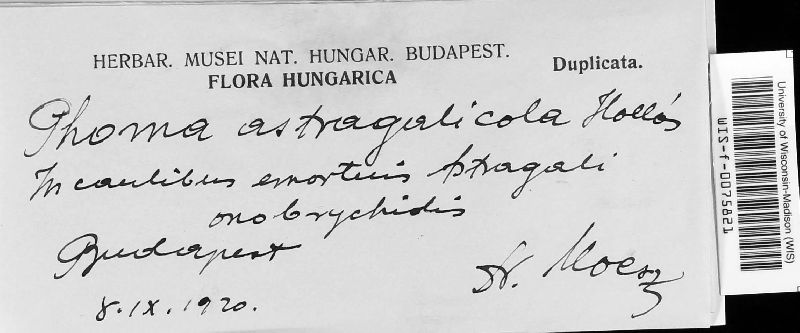 HERBAR. MUSEI NAT. HUNGAR. BUDAPEST.
FLORA HUNGARICA
Duplicata.
Phoma astragalicola Hollós
In caulibus emortuis Astragali
onobrychidis
Budapest
8. IX. 1920.
Dr. Moesz
University of Wisconsin-Madison (WIS)
WIS-f-0075821